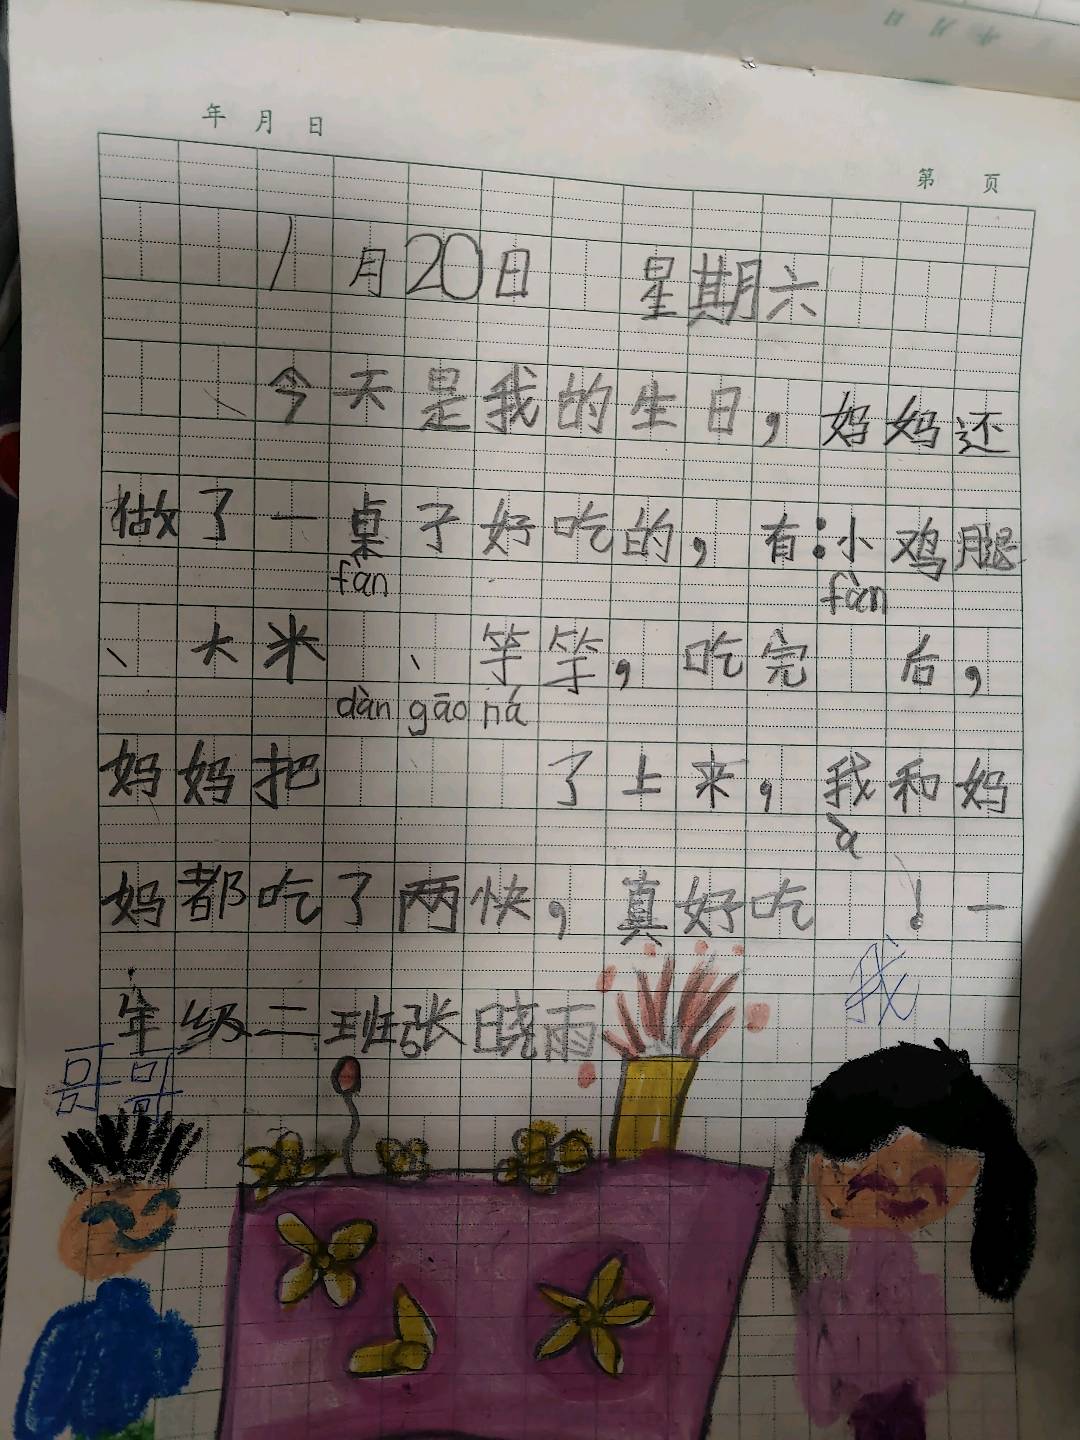 年 月 日
第 页
1月20日 星期六
今天是我的生日，妈妈还
做了一桌子好吃的，有：小鸡腿
fàn fàn
、大米 、等等，吃完 后，
dàn gāo ná
妈妈把 了上来，我和妈
à
妈都吃了两快，真好吃 ！一
年级二班张晓雨
我
哥哥